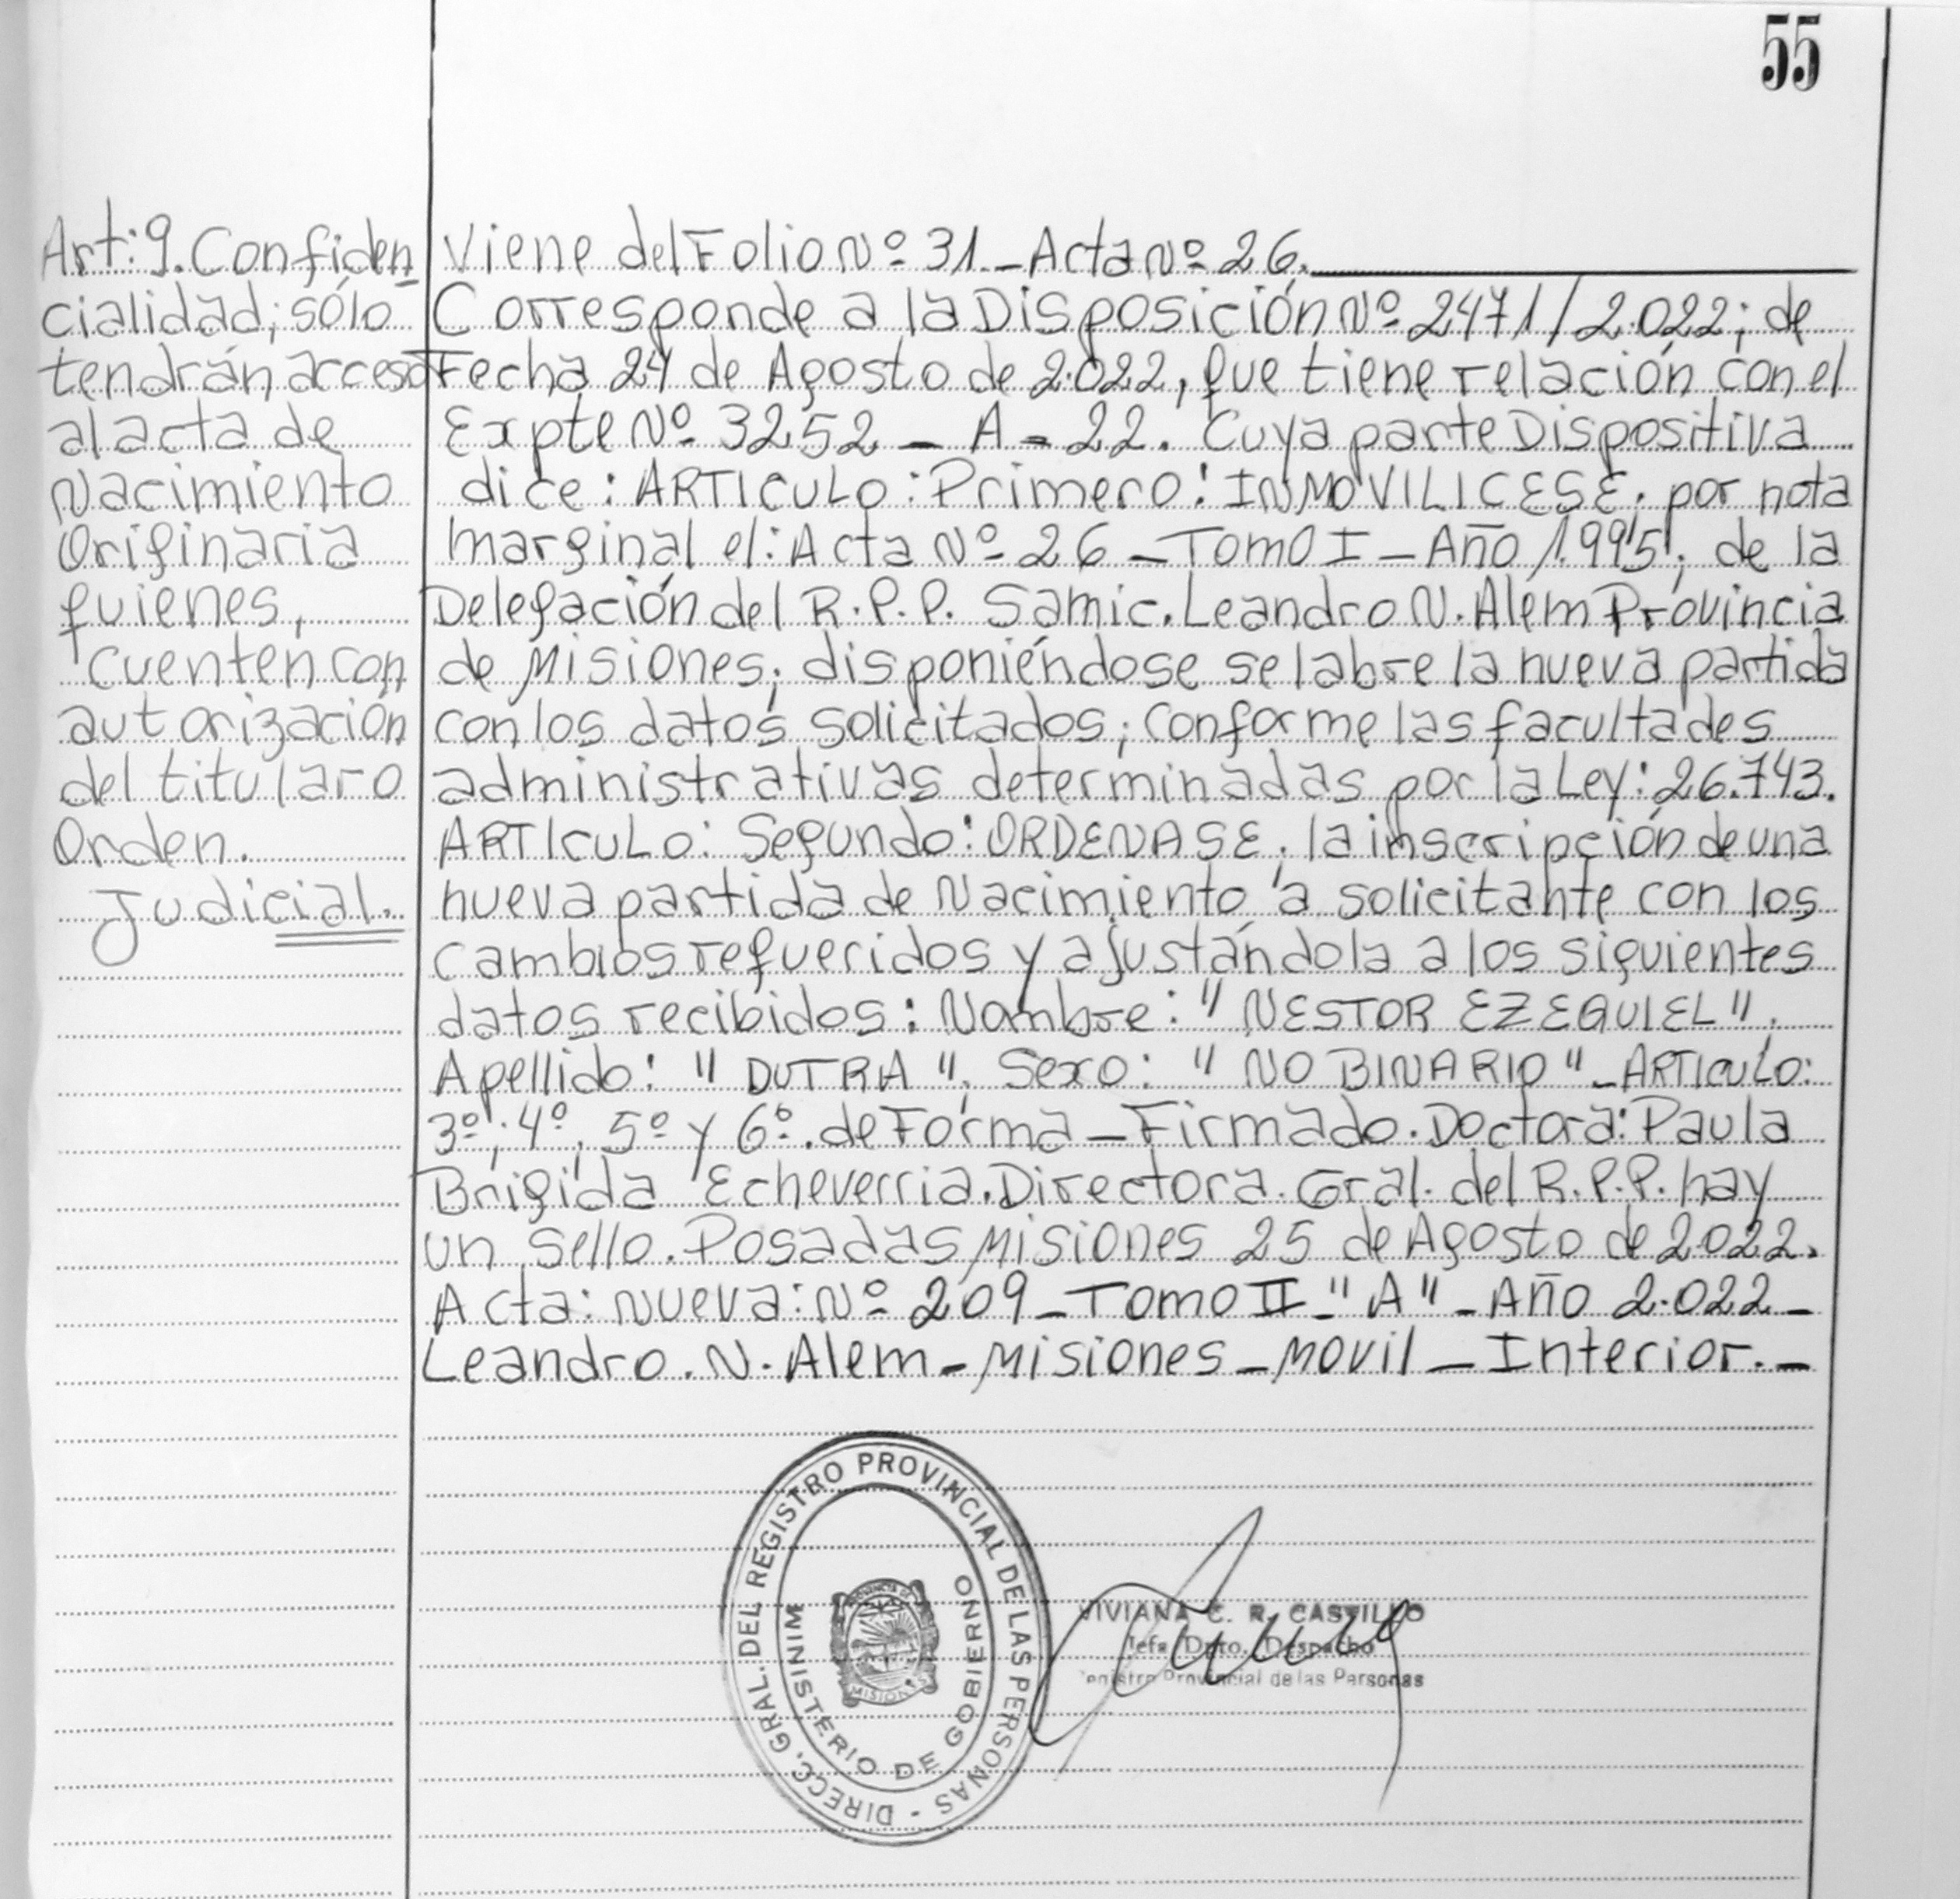 55
Art: 9. Confiden
cialidad; sólo
tendrán acceso
al acta de
Nacimiento
Originaria
quienes,
cuenten con
autorización
del titular o
Orden.
Judicial.
Viene del Folio Nº 31._ Acta Nº 26.
Corresponde a la Disposición Nº 2471/2.022; de
Fecha 24 de Agosto de 2.022, que tiene relación con el
Expte Nº 3252 _ A _ 22. Cuya parte Dispositiva
dice: ARTICULO: Primero: INMOVILICESE. por nota
marginal el: Acta Nº 26 _ Tomo I _ Año 1.995; de la
Delegación del R.P.P. Samic. Leandro N. Alem Provincia
de Misiones; disponiéndose se labre la nueva partida
con los datos solicitados; conforme las facultades
administrativas determinadas por la Ley: 26.743.
ARTICULO: Segundo: ORDENASE. la inscripción de una
nueva partida de Nacimiento a solicitante con los
cambios requeridos y ajustándola a los siguientes
datos recibidos: Nombre: "NESTOR EZEQUIEL".
Apellido: "DUTRA". Sexo: "NO BINARIO" _ ARTICULO:
3º; 4º, 5º y 6º. de Forma _ Firmado. Doctora: Paula
Brigida Echeverria. Directora. Gral. del R.P.P. hay
un sello. Posadas Misiones 25 de Agosto de 2022.
Acta: Nueva: Nº 209 _ Tomo II "A" _ Año 2.022 _
Leandro. N. Alem _ Misiones _ Movil _ Interior. _
DIRECC. GRAL. DEL REGISTRO PROVINCIAL DE LAS PERSONAS -
MINISTERIO DE GOBIERNO
MISIONES
VIVIANA C. R. CASTILLO
Jefa Dpto. Despacho
Registro Provincial de las Personas